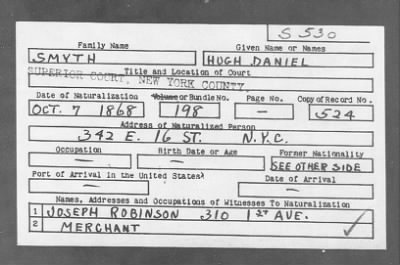 S 530
Family Name Given Name or Names
SMYTH HUGH DANIEL
Title and Location of Court
SUPERIOR COURT, NEW YORK COUNTY.
Date of Naturalization Volume or Bundle No. Page No. Copy of Record No.
OCT. 7 1868 198 — 524
Address of Naturalized Person
342 E. 16 ST. N.Y.C.
Occupation Birth Date or Age Former Nationality
— — SEE OTHER SIDE
Port of Arrival in the United States Date of Arrival
— —
Names, Addresses and Occupations of Witnesses To Naturalization
1 JOSEPH ROBINSON 310 1ST AVE.
2 MERCHANT